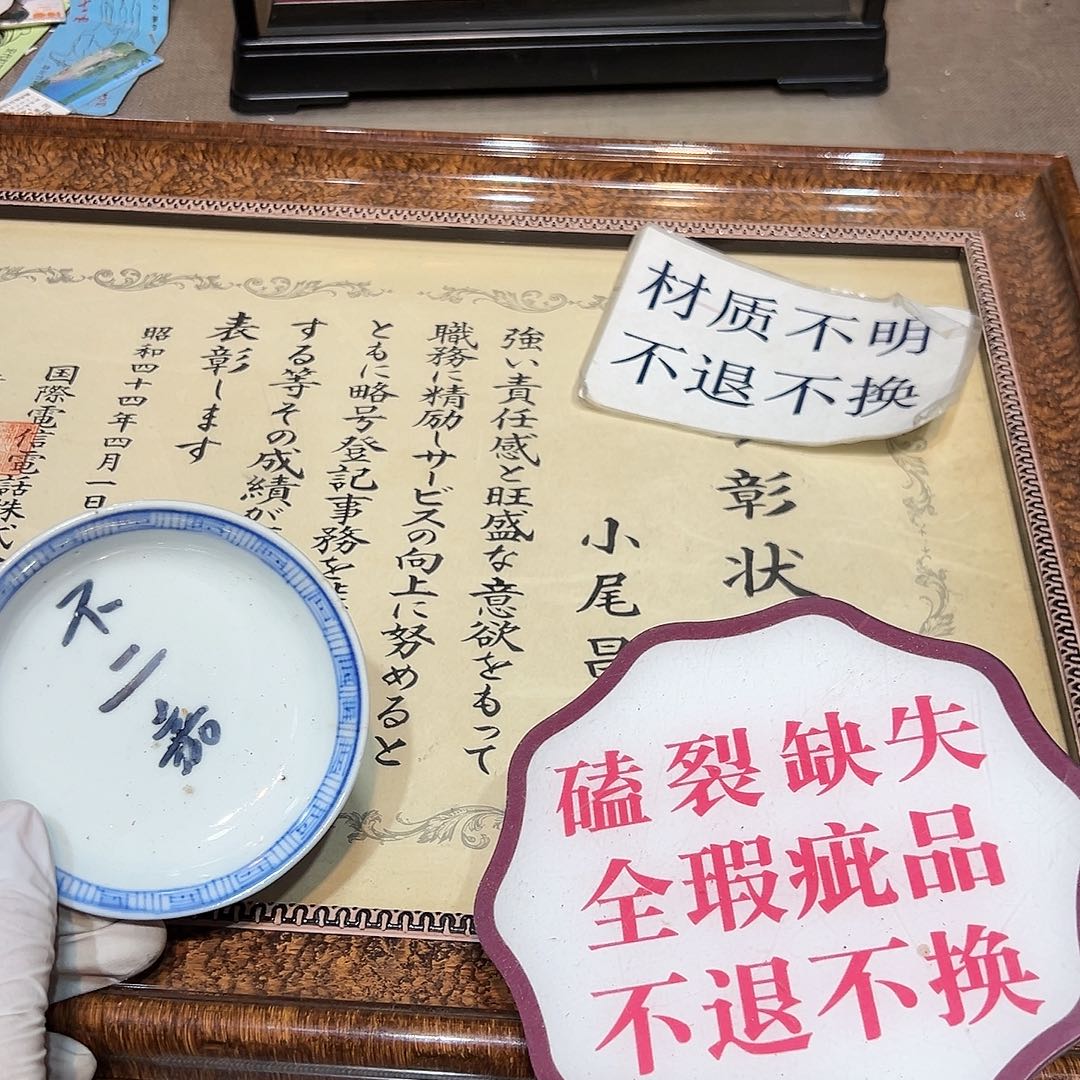 材质不明
不退不换
彰状
小尾昌
強い責任感と旺盛な意欲をもって
職務に精励しサービスの向上に努めると
ともに略号登記事務を
する等その成績が
表彰します
昭和四十四年四月一日
国際電信電話株式
不二
磕裂缺失
全瑕疵品
不退不换